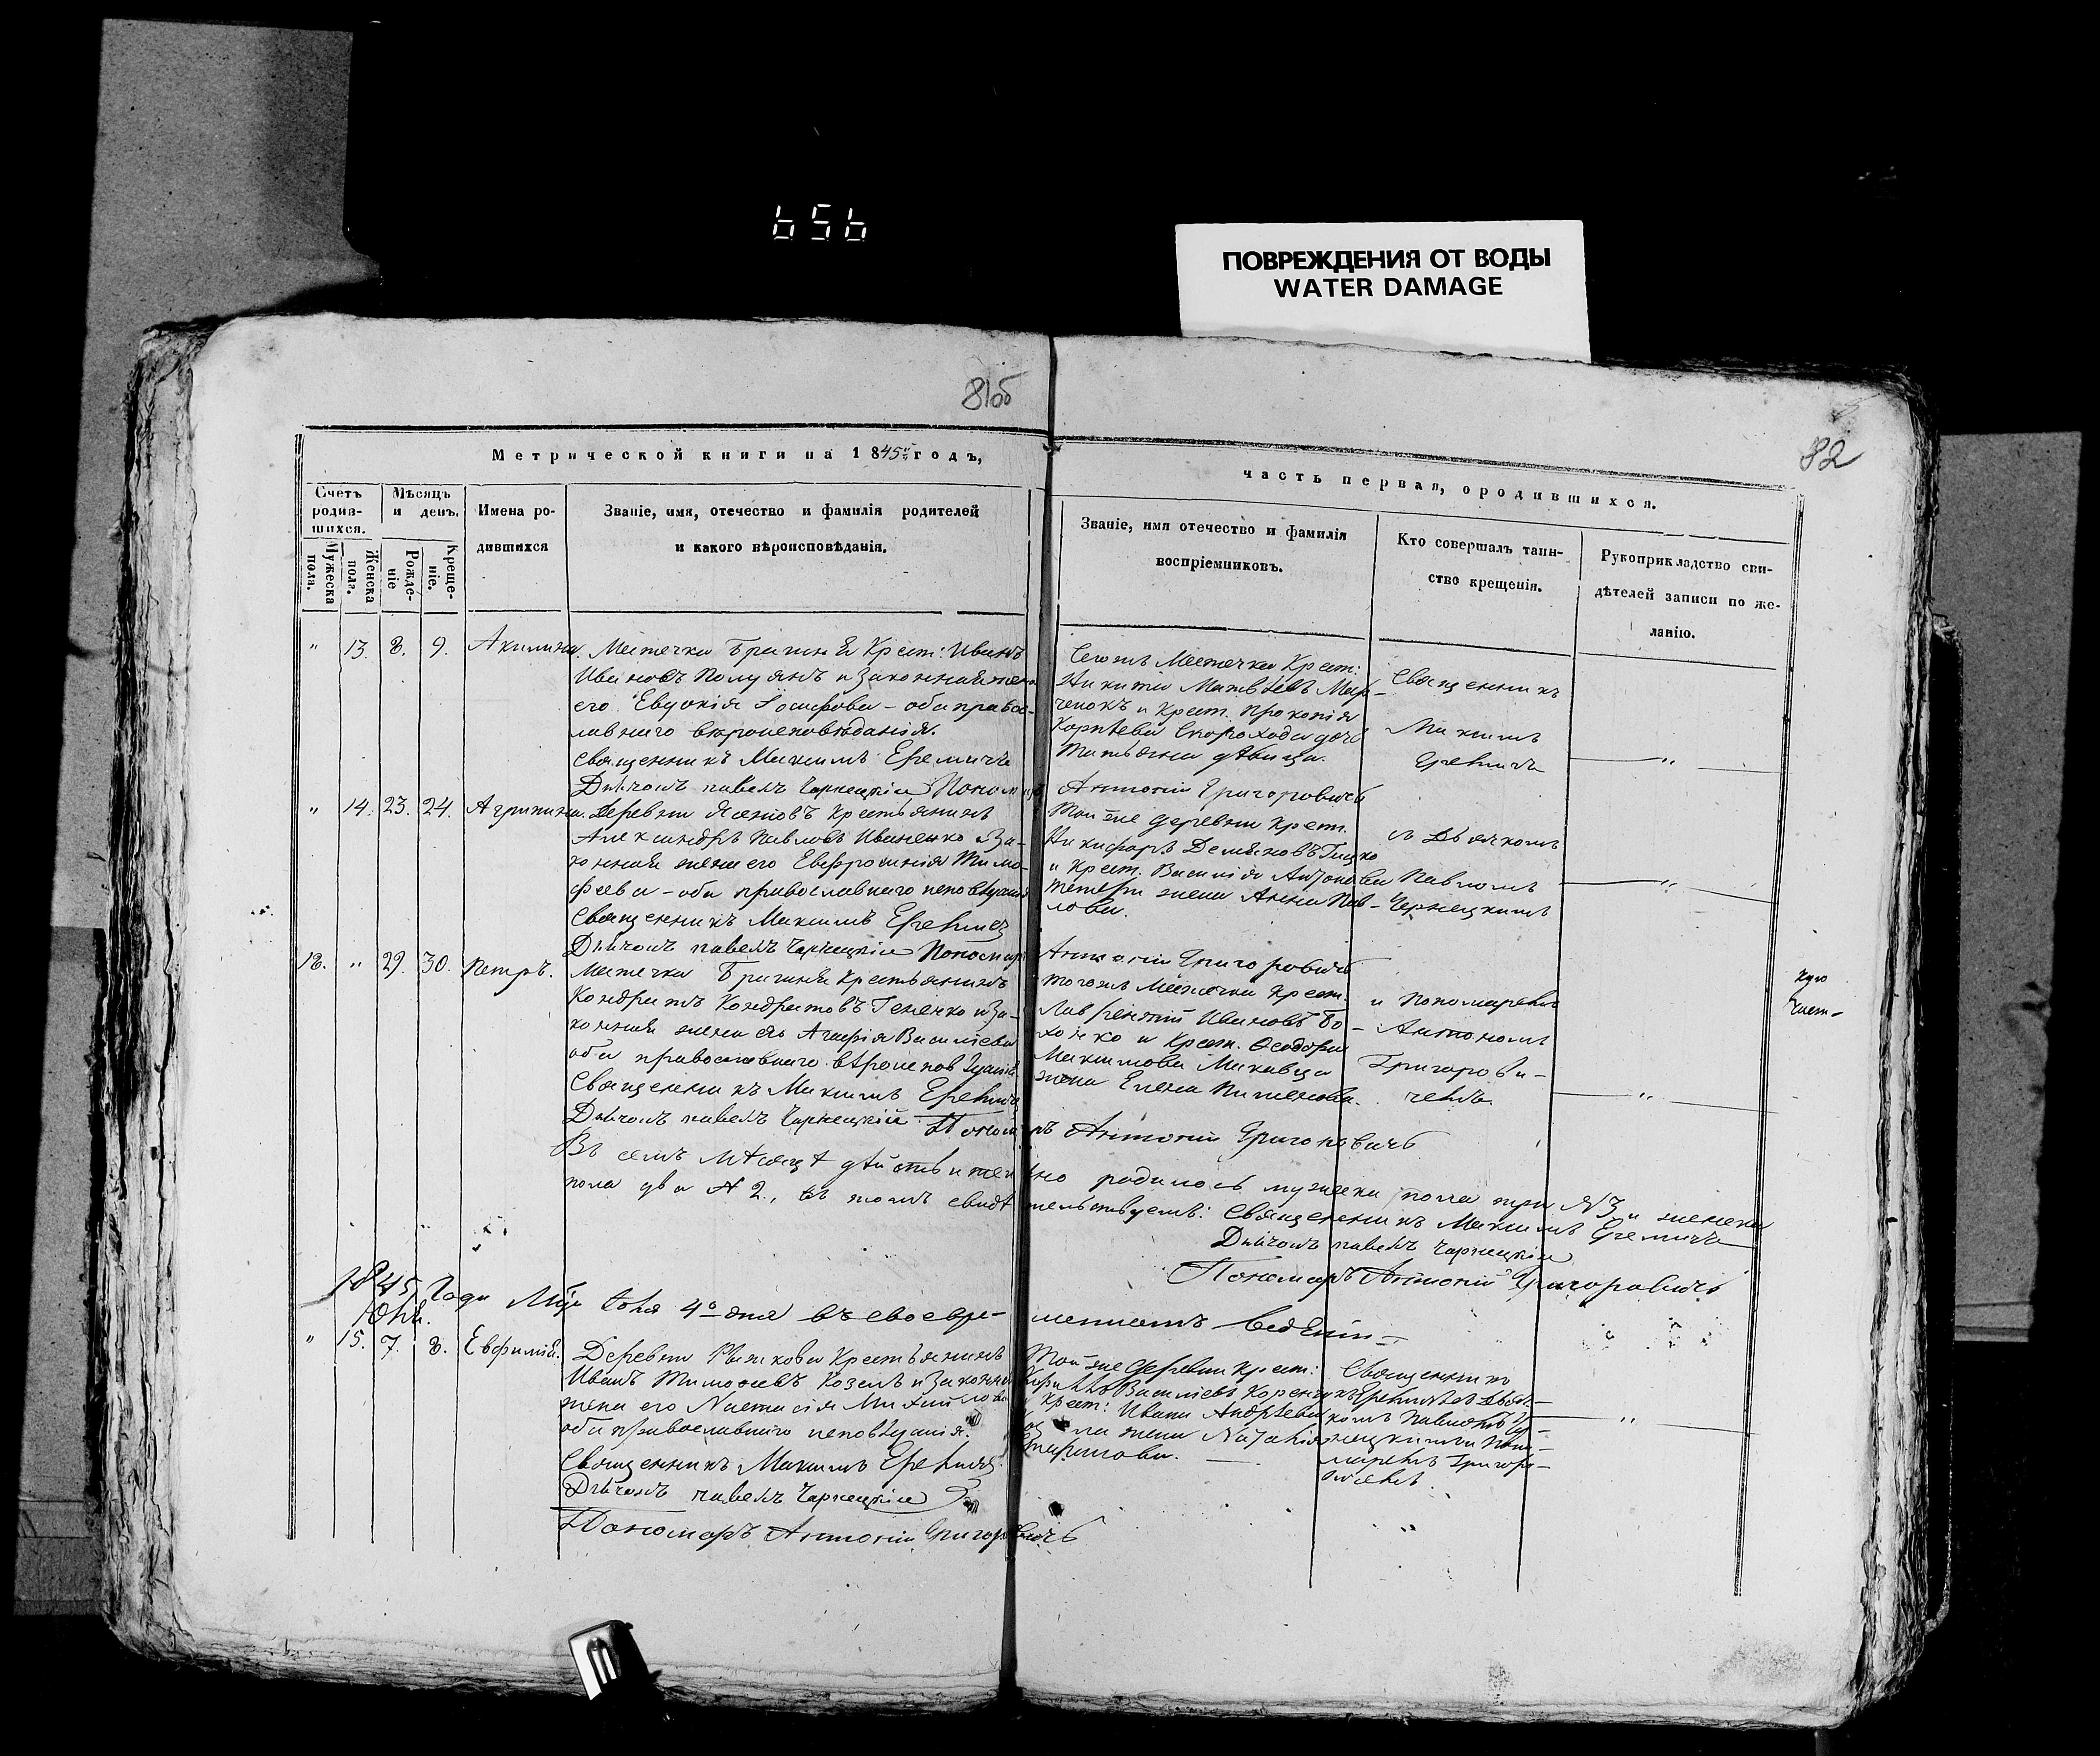 656
ПОВРЕЖДЕНИЯ ОТ ВОДЫ
WATER DAMAGE
81об
82
Метрической книги на 1845 годъ,
часть первая, о родившихся.
Счетъ родив-шихся.
Мужеска пола.
Женска пола.
Мѣсяцъ и день.
Рожде-ніе
Креще-ніе.
Имена ро-
дившихся
Званіе, имя, отечество и фамилія родителей
и какого вѣроисповѣданія.
Званіе, имя отечество и фамилія
воспріемниковъ.
Кто совершалъ таин-
ство крещенія.
Рукоприкладство сви-
дѣтелей записи по же-
ланію.
" 13. 8. 9. Акилина. Местечка Брагиня Крест: Иванъ
Ивановъ Полуянъ и Законная жена
его Евдокія Іосифова – оба правос-
лавнаго вѣроисповѣданія.
Священникъ Максимъ Еремичъ
Дьячокъ Павелъ Чарнецкій Пономарь
Антоній Григоровичъ
Тогожъ Местечка Крест:
Никита Матвѣевъ Мар-
ченокъ и Крест. Прокопія
Корнѣева Скорохода дочь
Татьяна дѣвица.
Священникъ
Максимъ
Еремичъ
" 14. 23. 24. Агрипина. Деревни Ясеновъ Крестьянинъ
Александръ Павловъ Иваненко и За-
конная жена его Евфросинія Тимо-
феева – оба православнаго исповѣданія
Священникъ Максимъ Еремичъ
Дьячокъ Павелъ Чарнецкій Пономарь
Антоній Григоровичъ
Той же деревни Крест.
Никифоръ Демьяновъ
и Крест. Василія Антонова
жена Анна Пав-
лова.
съ Дьячкомъ
Павломъ
Чернецкимъ
12. " 29. 30. Петръ. Местечка Брагиня Крестьянинъ
Кондратъ Кондратовъ Гененко и За-
конная жена его Агафія Васильева
оба православнаго вѣроисповѣданія.
Священникъ Максимъ Еремичъ
Дьячокъ Павелъ Чарнецкій Пономарь Антоній Григоровичъ
Тогожъ Местечка Крест.
Лаврентій Ивановъ Бо-
хонко и Крест. Ѳеодора
Максимова
жена Елена Пименова.
и Пономаремъ
Антономъ
Григорови-
чемъ.
Въ семъ мѣсяцѣ дѣйствительно родилось мужеска пола три №3 и женска
пола два №2, въ томъ свидѣтельствуемъ: Священникъ Максимъ Еремичъ
Дьячокъ Павелъ Чарнецкій
Пономарь Антоній Григоровичъ
1845 Года Мѣсяца Іюля 4го дня въ своевременномъ веденіи
Юнь.
" 15. 7. 8. Евфимія. Деревни Рыжкова Крестьянинъ
Иванъ Тимоѳеевъ Козелъ и Законная
жена его Настасія Михайлова
оба православнаго исповѣданія.
Священникъ Максимъ Еремичъ
Дьячокъ Павелъ Чарнецкій
Пономарь Антоній Григоровичъ
Той же деревни Крест:
Васильевъ
и Крест: Ивана Андрѣева
жена Наталія
Священникъ
Еремичъ съ Дьяч-
комъ Павломъ Чер-
нецкимъ и Поно-
маремъ Григоро-
вичемъ.